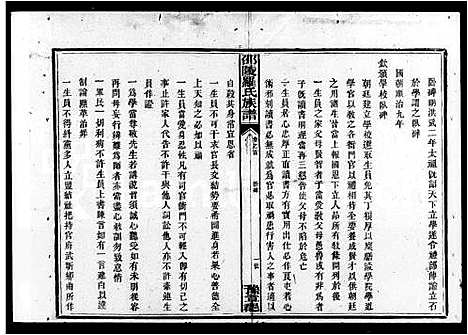 臥碑明洪武二年太祖詔天下立學
於學謂之臥碑
國朝順治九年
欽頒學校臥碑
朝廷建立學校選取生員免其丁糧厚以廩膳設學院學道
學官以教之各衙門官以禮相待全要養成賢才以供朝廷
之用諸生皆當上報國恩下立人品所有教條開列於後
一生員之家父母賢智者子當受教父母愚魯或有非為者
子既讀書明理當再三懇告使父母不陷於危亡
一生員立志當學為忠臣清官書史所載忠清事蹟務須互
一生員居心忠厚正直讀書方有實用出仕必作良吏若心
術邪刻讀書必無成就為官必取禍患行害人之事者往往
自殺其身常宜思省
一生員不可干求官長交結勢要希圖進身若果心善德全
上天知之必加以福
一生員當愛身忍性凡有司官衙門不可輕入即有切己之
事止許家人代告不許干與他人詞訟他人亦不許牽連生
員作證
一為學當尊敬先生若講說皆須誠心聽受如有未明從容
再問毋妄行辨難為師者亦當盡心教訓勿致怠惰
一軍民一切利病不許生員上書陳言如有一言建白以違
制論黜革治罪
一生員不許糾黨多人立盟結社把持官府武斷鄉曲所作
邵陵羅氏族譜
卷之首
豫章堂